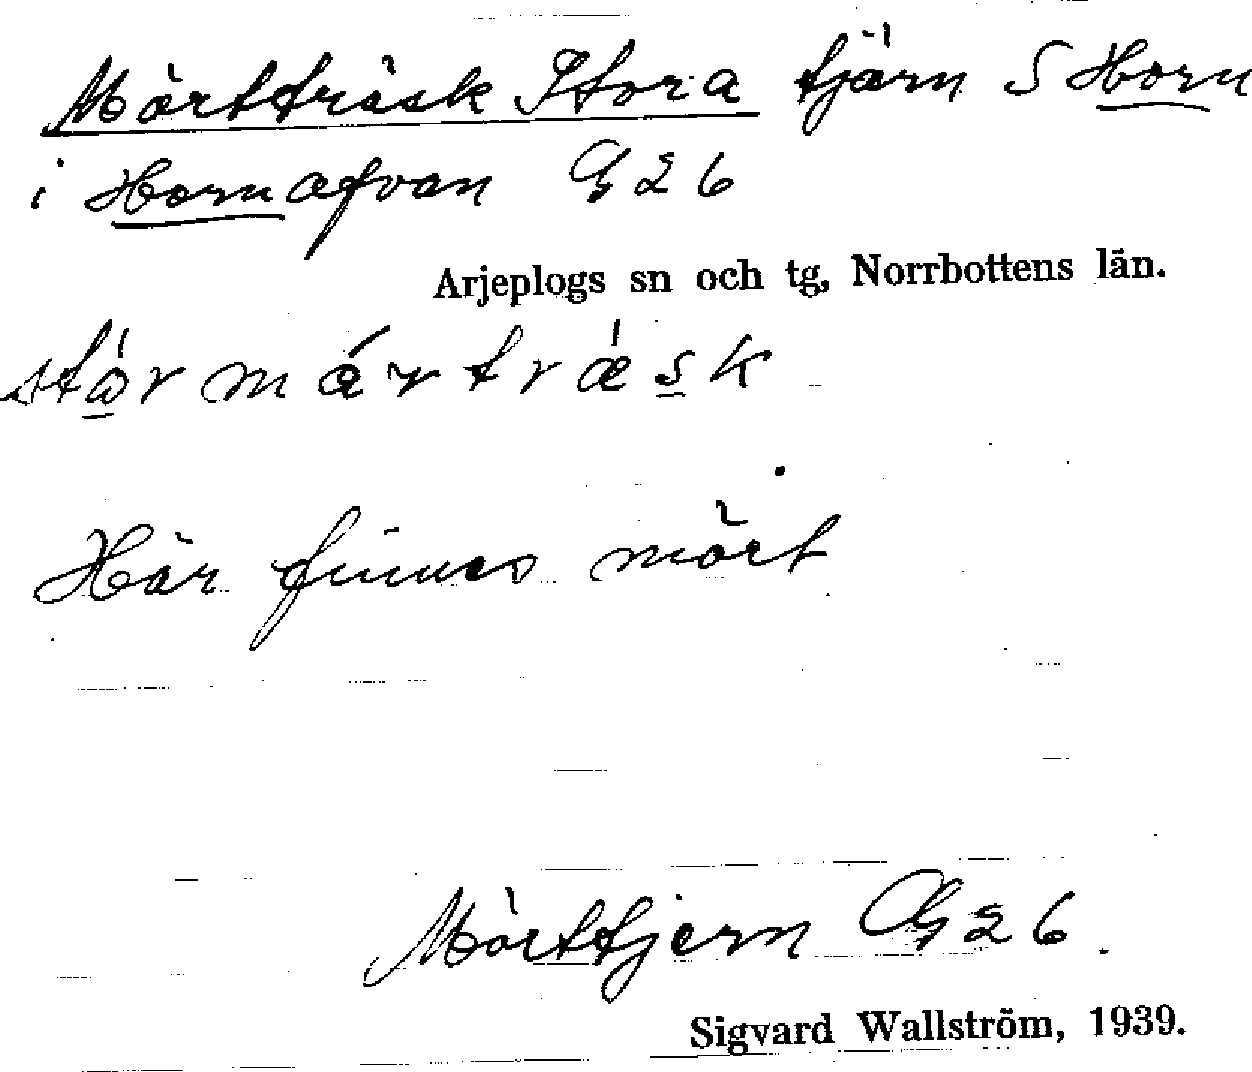 Mörtträsk Stora tjärn S Horn
i Hornafvan G26
Arjeplogs sn och tg, Norrbottens län.
stỏr mártrǽsk
Här finnes mört
Mörttjern G26.
Sigvard Wallström, 1939.